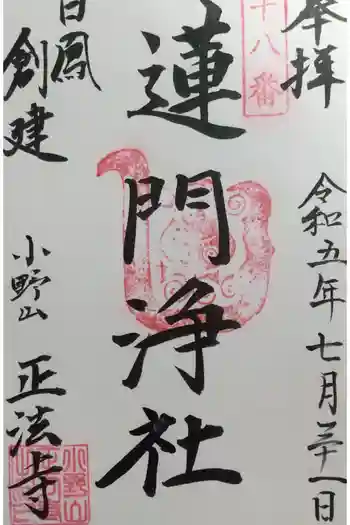 奉拝
令和五年七月三十一日
十八番
蓮門浄社
日鳳
創建
小野山
正法寺